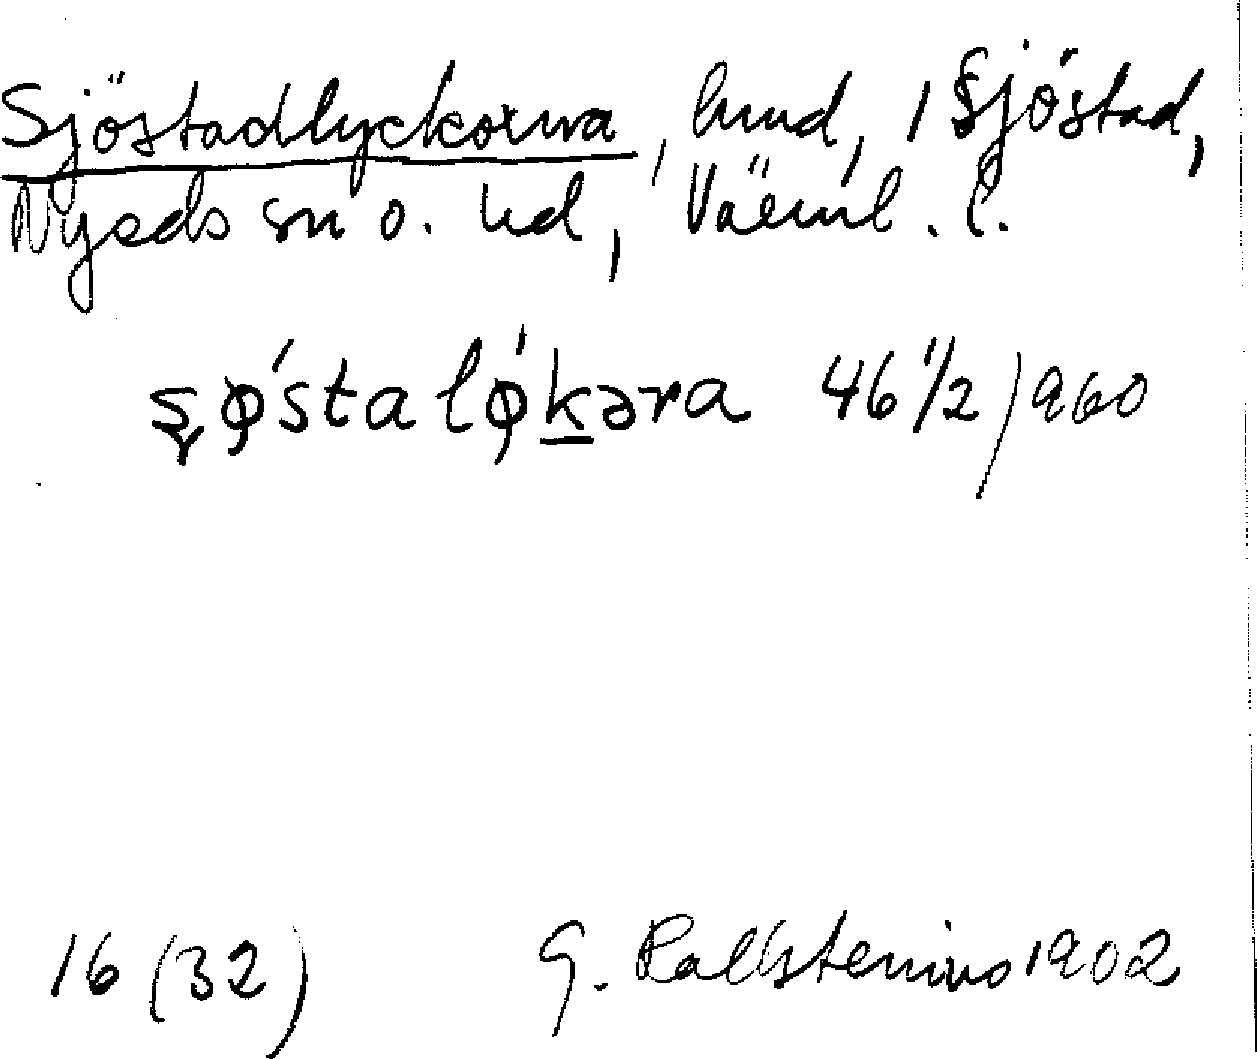 Sjöstadlyckorna, hmd, i Sjöstad,
Nyeds sn o. hd, Värml. l.
ȿǿstalǿkəra 46 1/2 / 960
16 (32) G. Kallstenius 1902